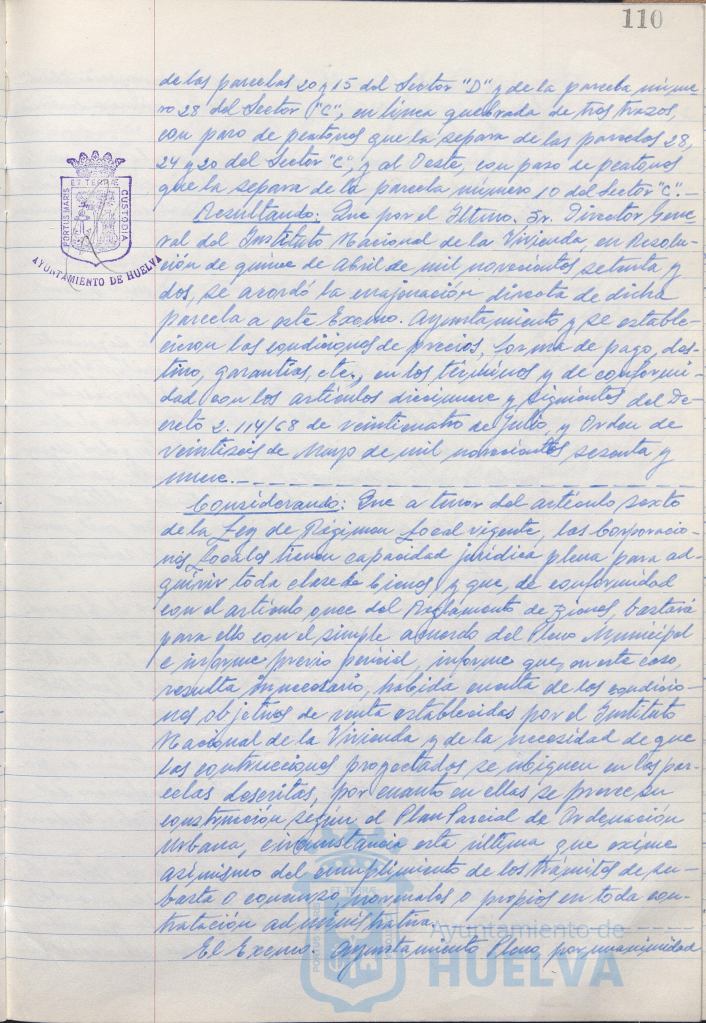 110
de las parcelas 20 y 15 del Sector "D" y de la parcela núme-
ro 28 del Sector "C", en línea quebrada de tres trazos,
con paso de peatones que la separa de las parcelas 28,
24 y 20 del Sector "C", y al Oeste, con paso de peatones
que la separa de la parcela número 10 del Sector "C".-
Resultando: Que por el Iltmo. Sr. Director Gene-
ral del Instituto Nacional de la Vivienda, en Resolu-
ción de quince de Abril de mil novecientos setenta y
dos, se acordó la enajenación directa de dicha
parcela a este Excmo. Ayuntamiento y se estable-
cieron las condiciones de precios, forma de pago, des-
tino, garantías, etc., en los términos y de conformi-
dad con los artículos diecinueve y siguientes del De-
creto 2.114/68 de veinticuatro de Julio, y Orden de
veintiseis de Mayo de mil novecientos sesenta y
nueve.-
Considerando: Que a tenor del artículo sexto
de la Ley de Régimen Local vigente, las Corporacio-
nes Locales tienen capacidad jurídica plena para ad-
quirir toda clase de bienes, y que, de conformidad
con el artículo once del Reglamento de Bienes, bastará
para ello con el simple acuerdo del Pleno Municipal
e informe previo pericial, informe que, en este caso,
resulta innecesario, habida cuenta de las condicio-
nes objetivas de venta establecidas por el Instituto
Nacional de la Vivienda y de la necesidad de que
las construcciones proyectadas se ubiquen en las par-
celas descritas, por cuanto en ellas se prevee su
construcción según el Plan Parcial de Ordenación
Urbana, circunstancia esta última que exime
asimismo del cumplimiento de los trámites de su-
basta o concurso, normales o propios en toda con-
tratación administrativa.
El Excmo. Ayuntamiento Pleno, por unanimidad
PORTUS MARIS
ET TERRÆ
CUSTODIA
AYUNTAMIENTO DE HUELVA
Ayuntamiento de
HUELVA